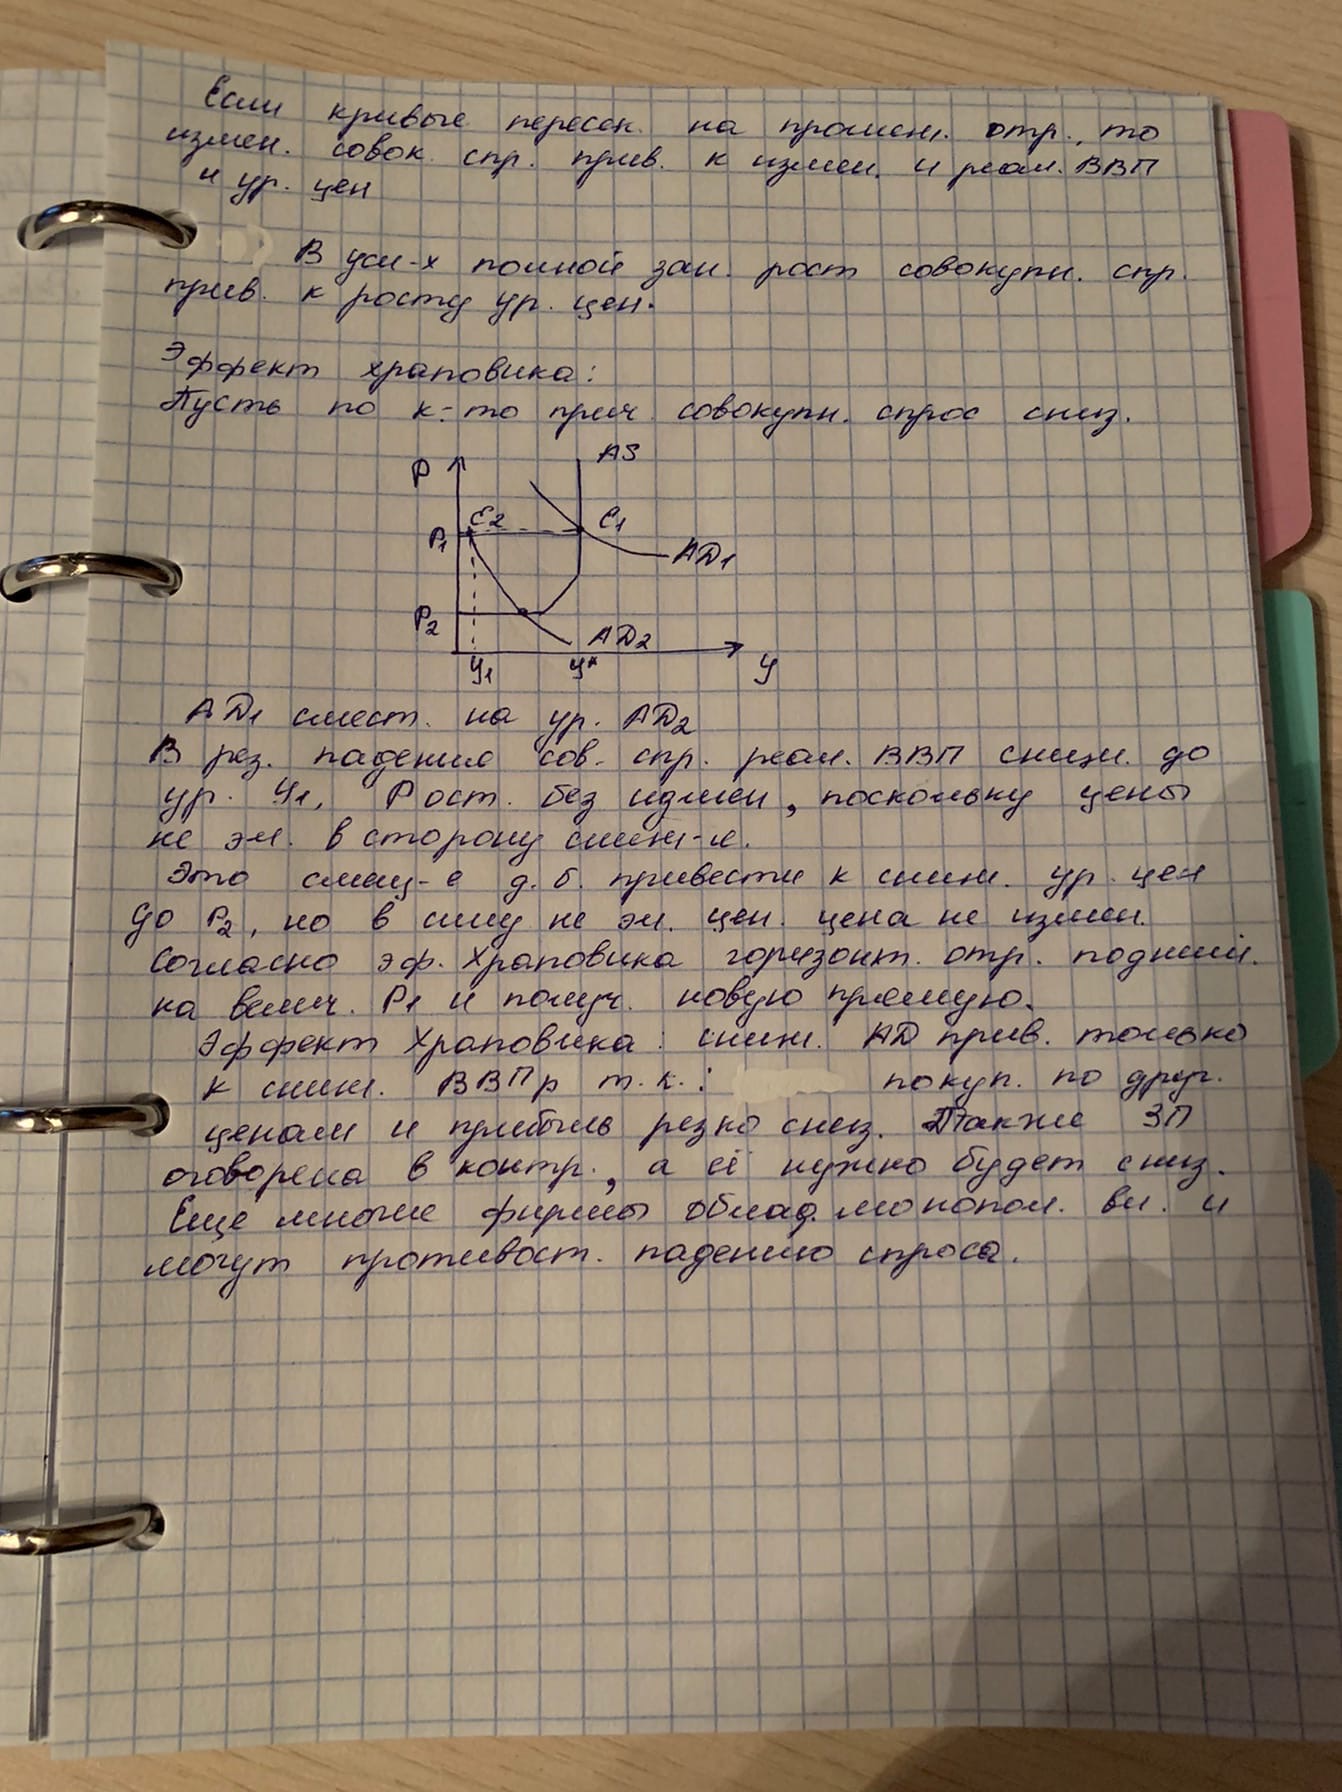 Если кривые пересек. на промеж. отр., то
измен. совок. спр. прив. к измен. и реал. ВВП
и ур. цен
В усл-х полной зан. рост совокупн. спр.
прив. к росту ур. цен.
Эффект храповика:
Пусть по к-то прич. совокупн. спрос сниз.
P
AS
P1
E2
E1
AD1
P2
AD2
y1
y*
y
AD1 смест. на ур. AD2
В рез. падения сов. спр. реал. ВВП снизи. до
ур. y1, P ост. без измен, поскольку цены
не эл. в сторону сниж-я.
Это смещ-е д.б. привести к сниж. ур. цен
до P2, но в силу не эл. цен. цена не измен.
Согласно эф. Храповика горизонт. отр. подним.
на велич. P1 и получ. новую прямую.
Эффект Храповика: сниж. AD прив. только
к сниж. ВВПр т.к.: покуп. по друг.
ценам и прибыль резко сниз. Также ЗП
оговорена в контр., а её нужно будет сниз.
Еще многие фирмы облад. монопол. вл. и
могут противост. падению спроса.